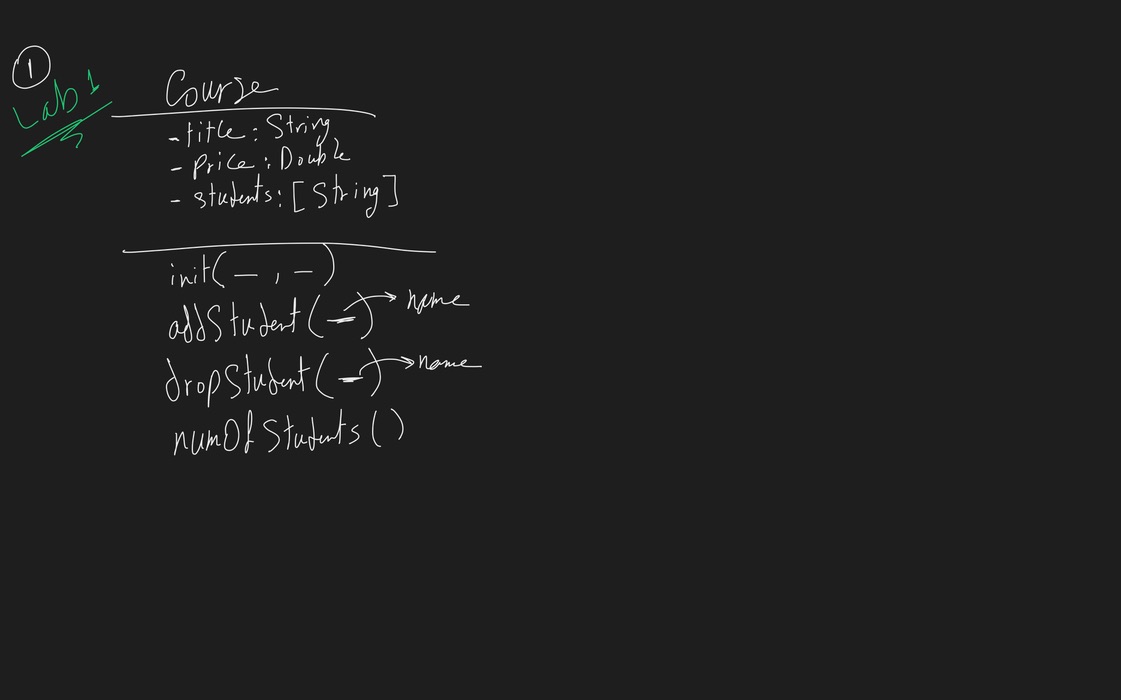 1
Lab 1
Course
- title: String
- price: Double
- students: [String]
init(_, _)
addStudent(_) → name
dropStudent(_) → name
numOfStudents()